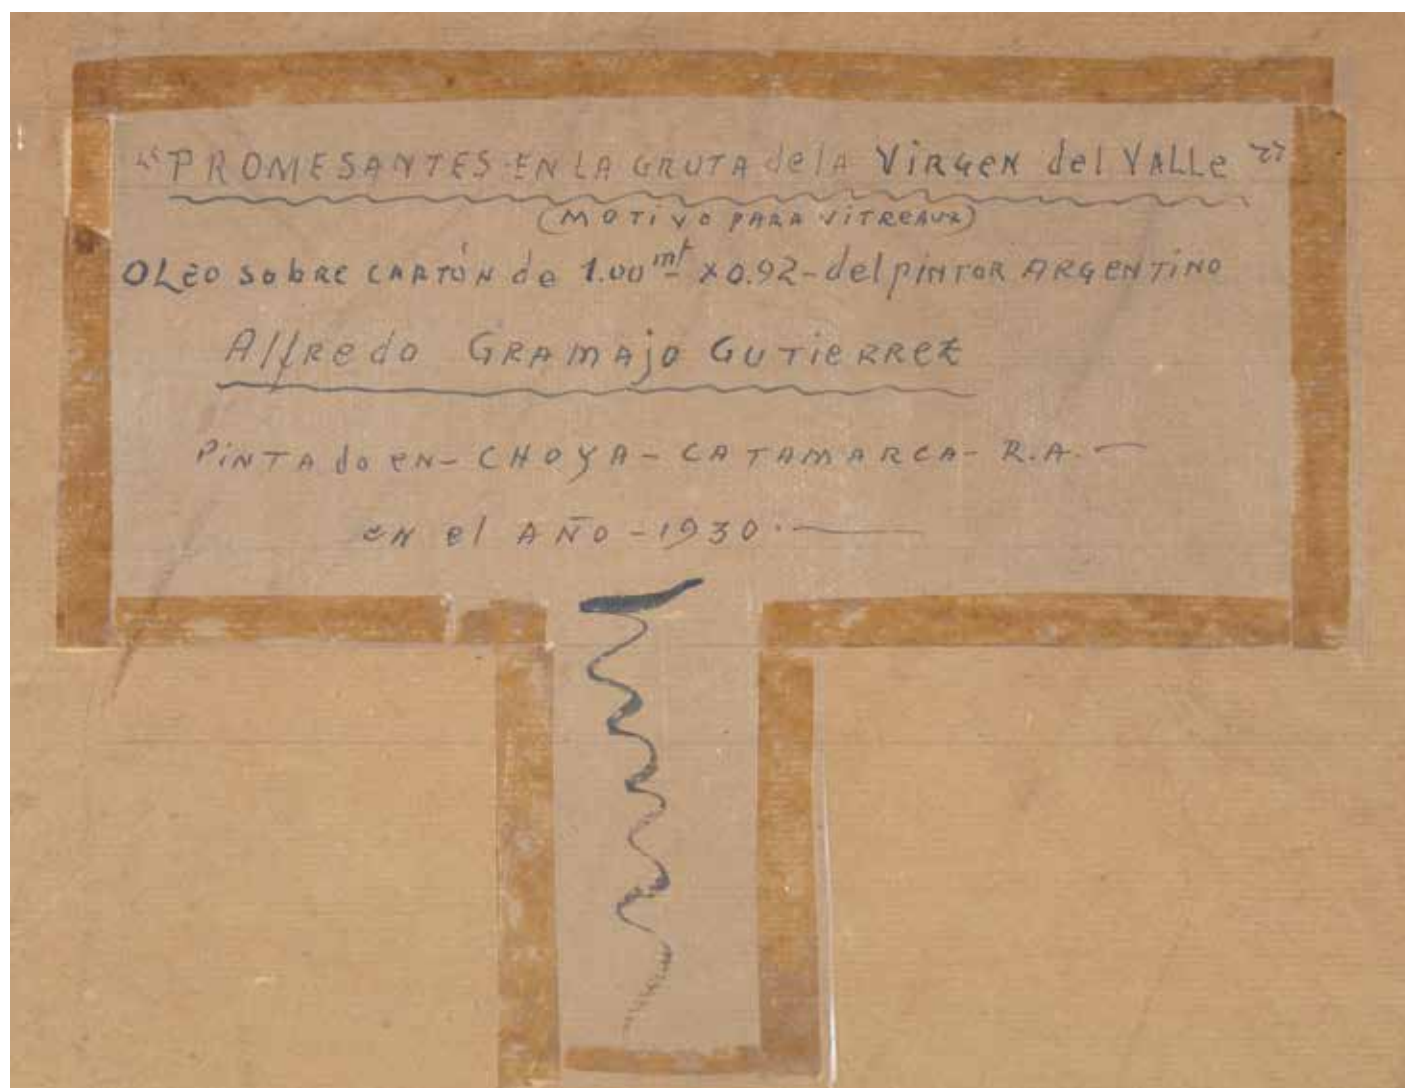 "PROMESANTES-EN LA GRUTA de lA VIRGEN del VALLe"
(MOTIVO PARA VITREAUX)
OLeo sobRe CARTÓN de 1.00 mt x 0.92-del pINTOR ARGENTINO
AlfRedo GRAMAjO GUTIERReZ
PiNTAdo eN-CHOYA-CATAMARCA-R.A.-
eN el AÑO-1930.-